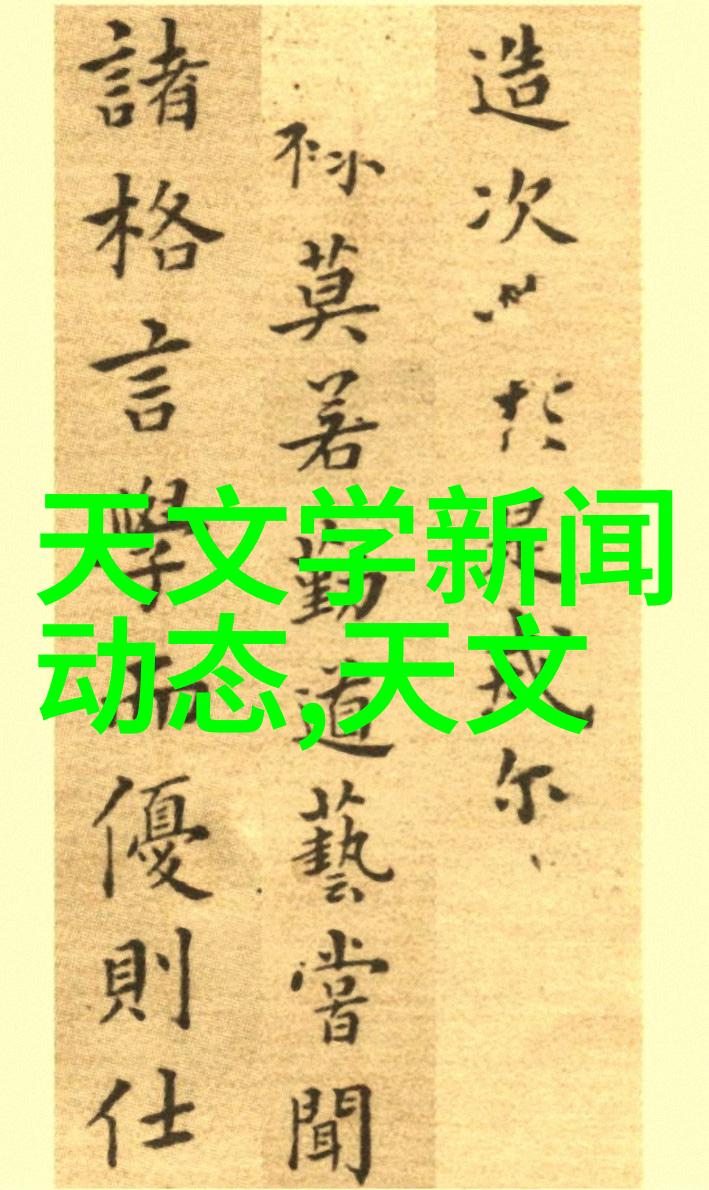 造次於是尔
莫若勤道藝嘗聞
諸格言學而優則仕
天文学新闻
动态,天文